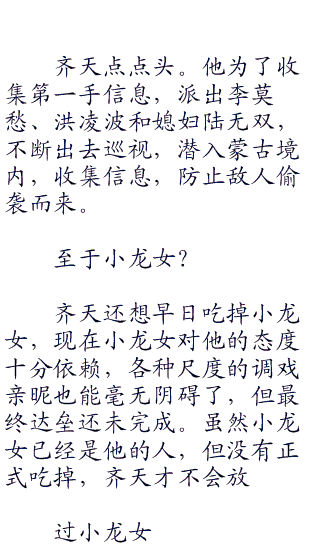 齐天点点头。他为了收
集第一手信息，派出李莫
愁、洪凌波和媳妇陆无双，
不断出去巡视，潜入蒙古境
内，收集信息，防止敌人偷
袭而来。
至于小龙女？
齐天还想早日吃掉小龙
女，现在小龙女对他的态度
十分依赖，各种尺度的调戏
亲昵也能毫无阴碍了，但最
终达垒还未完成。虽然小龙
女已经是他的人，但没有正
式吃掉，齐天才不会放
过小龙女